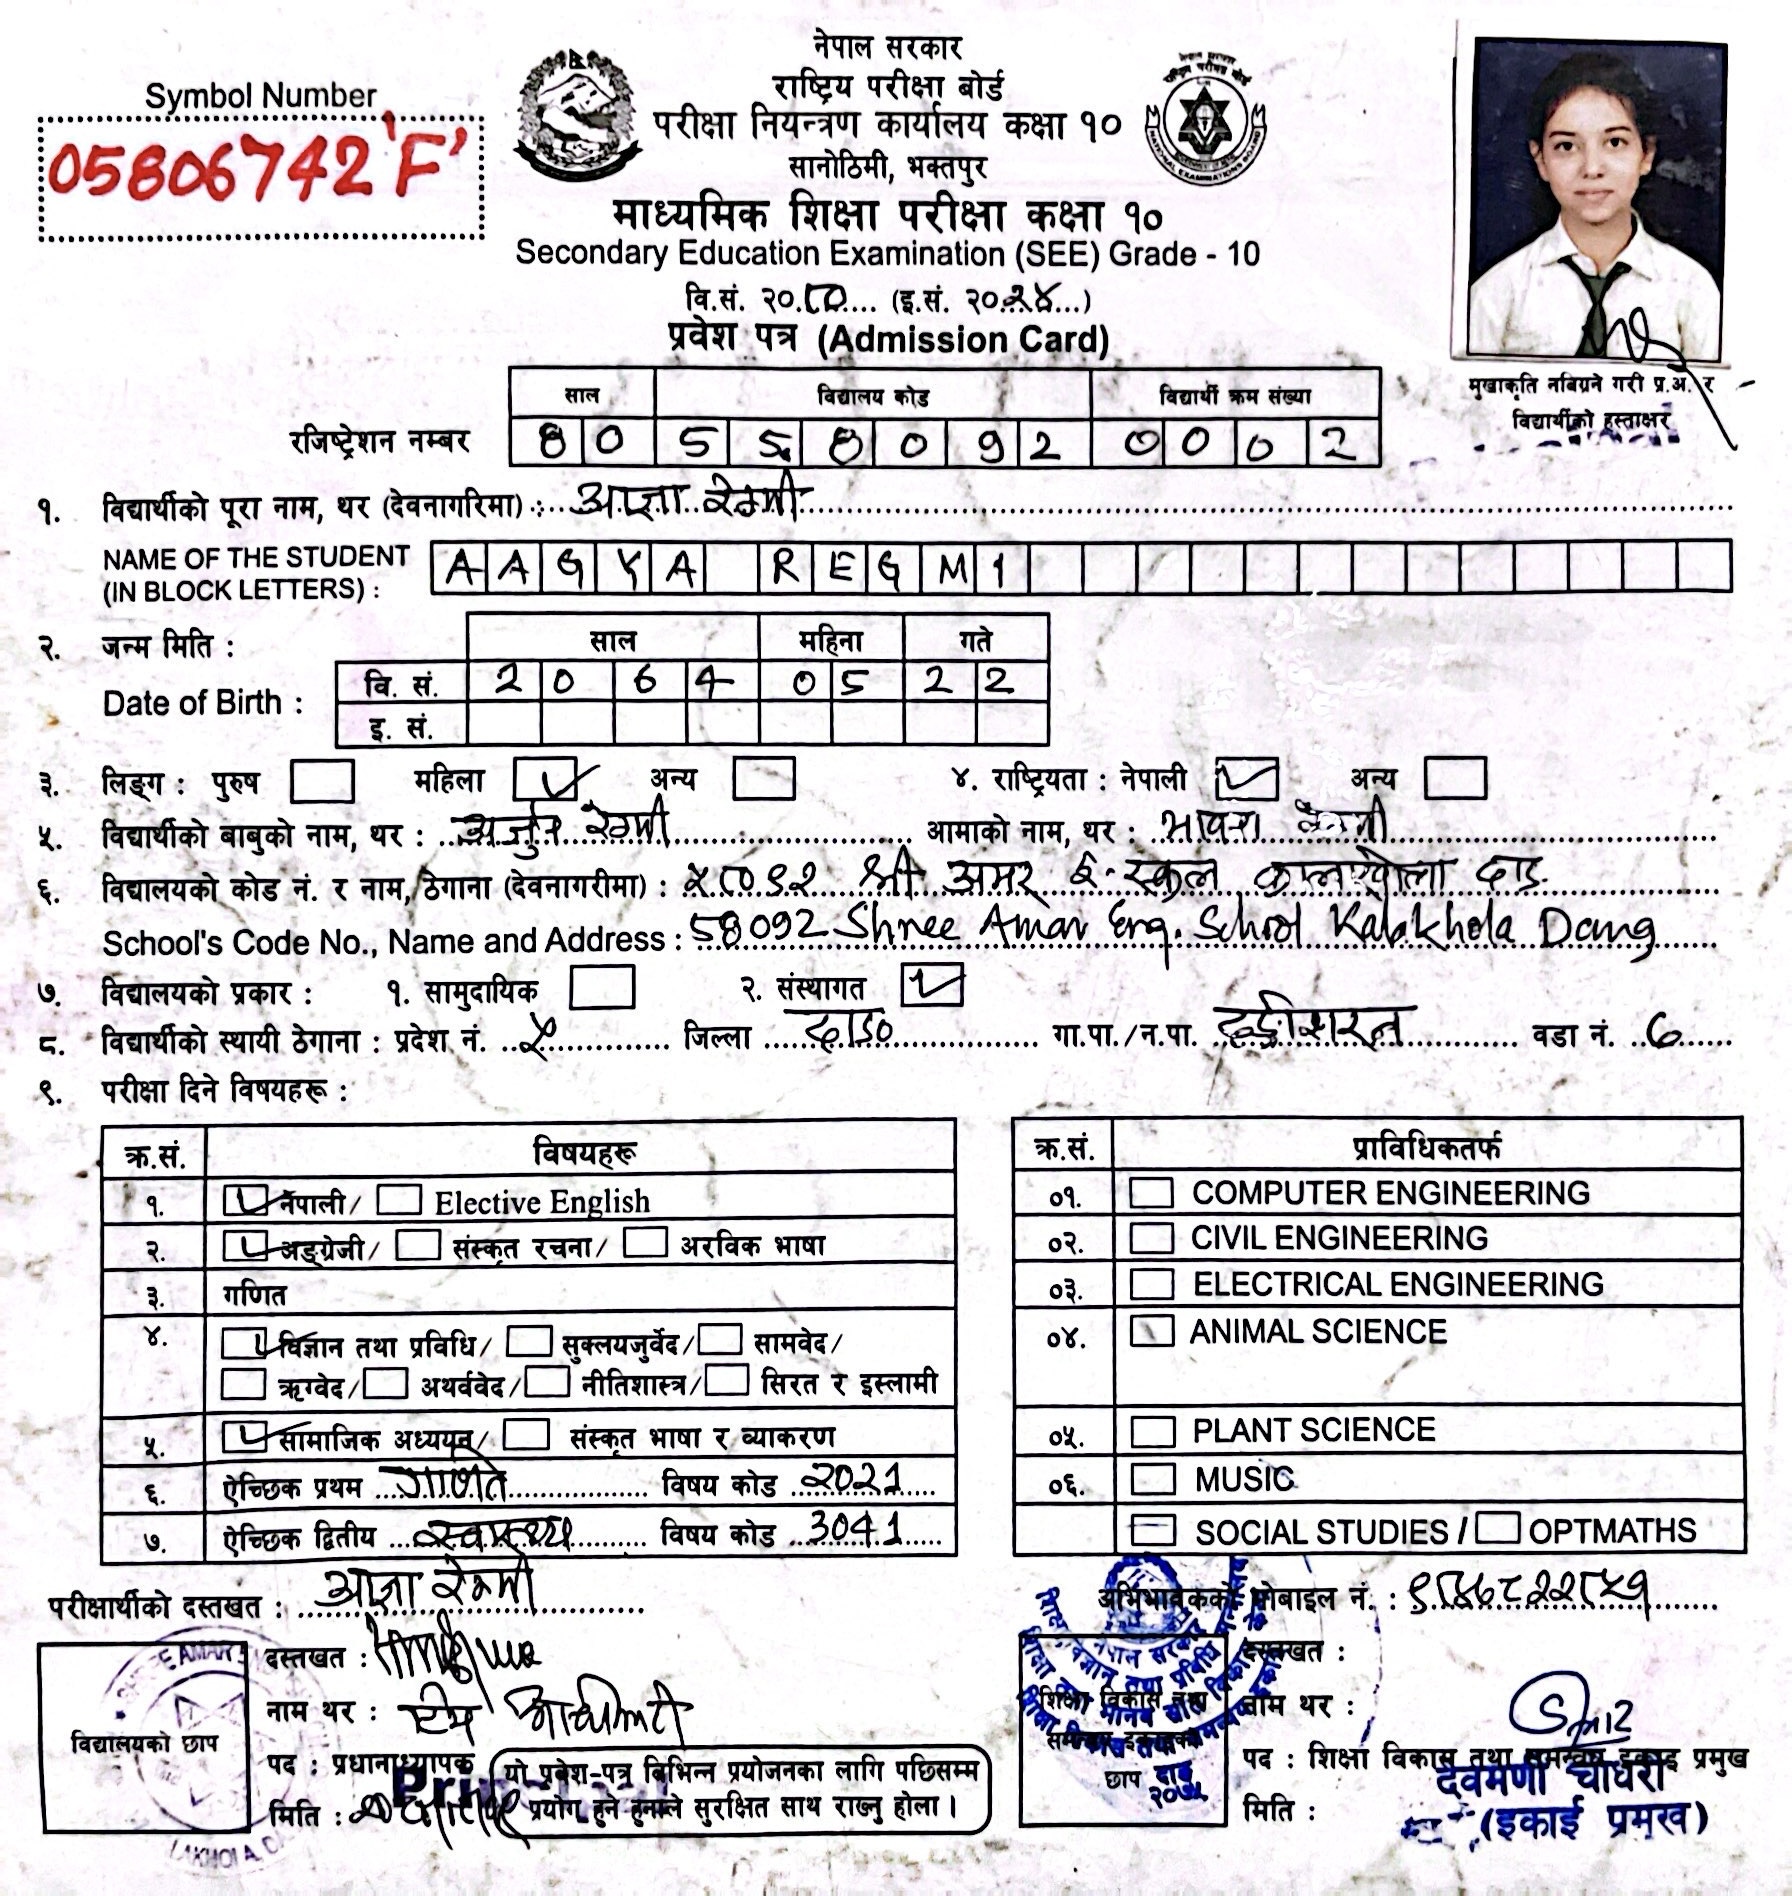 नेपाल सरकार
राष्ट्रिय परीक्षा बोर्ड
परीक्षा नियन्त्रण कार्यालय कक्षा १०
सानोठिमी, भक्तपुर
Symbol Number
05806742 'F'
माध्यमिक शिक्षा परीक्षा कक्षा १०
Secondary Education Examination (SEE) Grade - 10
वि.सं. २०८० (इ.सं. २०२४)
प्रवेश पत्र (Admission Card)
मुखाकृति नबिग्रने गरी प्र.अ. र
विद्यार्थीको हस्ताक्षर
साल विद्यालय कोड विद्यार्थी क्रम संख्या
रजिष्ट्रेशन नम्बर 8 0 5 5 8 0 9 2 0 0 0 2
१. विद्यार्थीको पूरा नाम, थर (देवनागरिमा) : आज्ञा रेग्मी
NAME OF THE STUDENT
(IN BLOCK LETTERS) : AAGYA REGMI
२. जन्म मिति : साल महिना गते
Date of Birth : वि. सं. 2 0 6 4 0 5 2 2
इ. सं.
३. लिङ्ग : पुरुष महिला अन्य ४. राष्ट्रियता : नेपाली अन्य
५. विद्यार्थीको बाबुको नाम, थर : अर्जुन रेग्मी आमाको नाम, थर : रेग्मी
६. विद्यालयको कोड नं. र नाम, ठेगाना (देवनागरीमा) : ५८०९२ श्री अमर ई. स्कुल कालाखोला दाङ
School's Code No., Name and Address : 58092 Shree Amar Eng. School Kalakhola Dang
७. विद्यालयको प्रकार : १. सामुदायिक २. संस्थागत
८. विद्यार्थीको स्थायी ठेगाना : प्रदेश नं. ५ जिल्ला दाङ गा.पा./न.पा. वडा नं. 6
९. परीक्षा दिने विषयहरू :
क्र.सं. विषयहरू
१. नेपाली/ Elective English
२. अङ्ग्रेजी/ संस्कृत रचना/ अरविक भाषा
३. गणित
४. विज्ञान तथा प्रविधि/ सुक्लयजुर्वेद/ सामवेद/
ऋग्वेद/ अथर्ववेद/ नीतिशास्त्र/ सिरत र इस्लामी
५. सामाजिक अध्ययन/ संस्कृत भाषा र व्याकरण
६. ऐच्छिक प्रथम गणित विषय कोड 2021
७. ऐच्छिक द्वितीय स्वास्थ्य विषय कोड 3041
क्र.सं. प्राविधिकतर्फ
०१. COMPUTER ENGINEERING
०२. CIVIL ENGINEERING
०३. ELECTRICAL ENGINEERING
०४. ANIMAL SCIENCE
०५. PLANT SCIENCE
०६. MUSIC
SOCIAL STUDIES / OPTMATHS
परीक्षार्थीको दस्तखत : आज्ञा रेग्मी
अभिभावकको मोबाइल नं. :
विद्यालयको छाप
दस्तखत :
नाम थर :
पद : प्रधानाध्यापक
मिति :
यो प्रवेश-पत्र विभिन्न प्रयोजनका लागि पछिसम्म
प्रयोग हुने हुनाले सुरक्षित साथ राख्नु होला ।
शिक्षा विकास तथा
समन्वय इकाइको
छाप
दाङ
२०७५
दस्तखत :
नाम थर :
पद : शिक्षा विकास तथा समन्वय इकाइ प्रमुख
देवमणी चौधरी
मिति :
(इकाई प्रमुख)